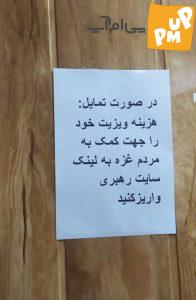 پی‌ام‌آپ
UP
PM
در صورت تمایل:
هزینه ویزیت خود
را جهت کمک به
مردم غزه به لینک
سایت رهبری
واریزکنید